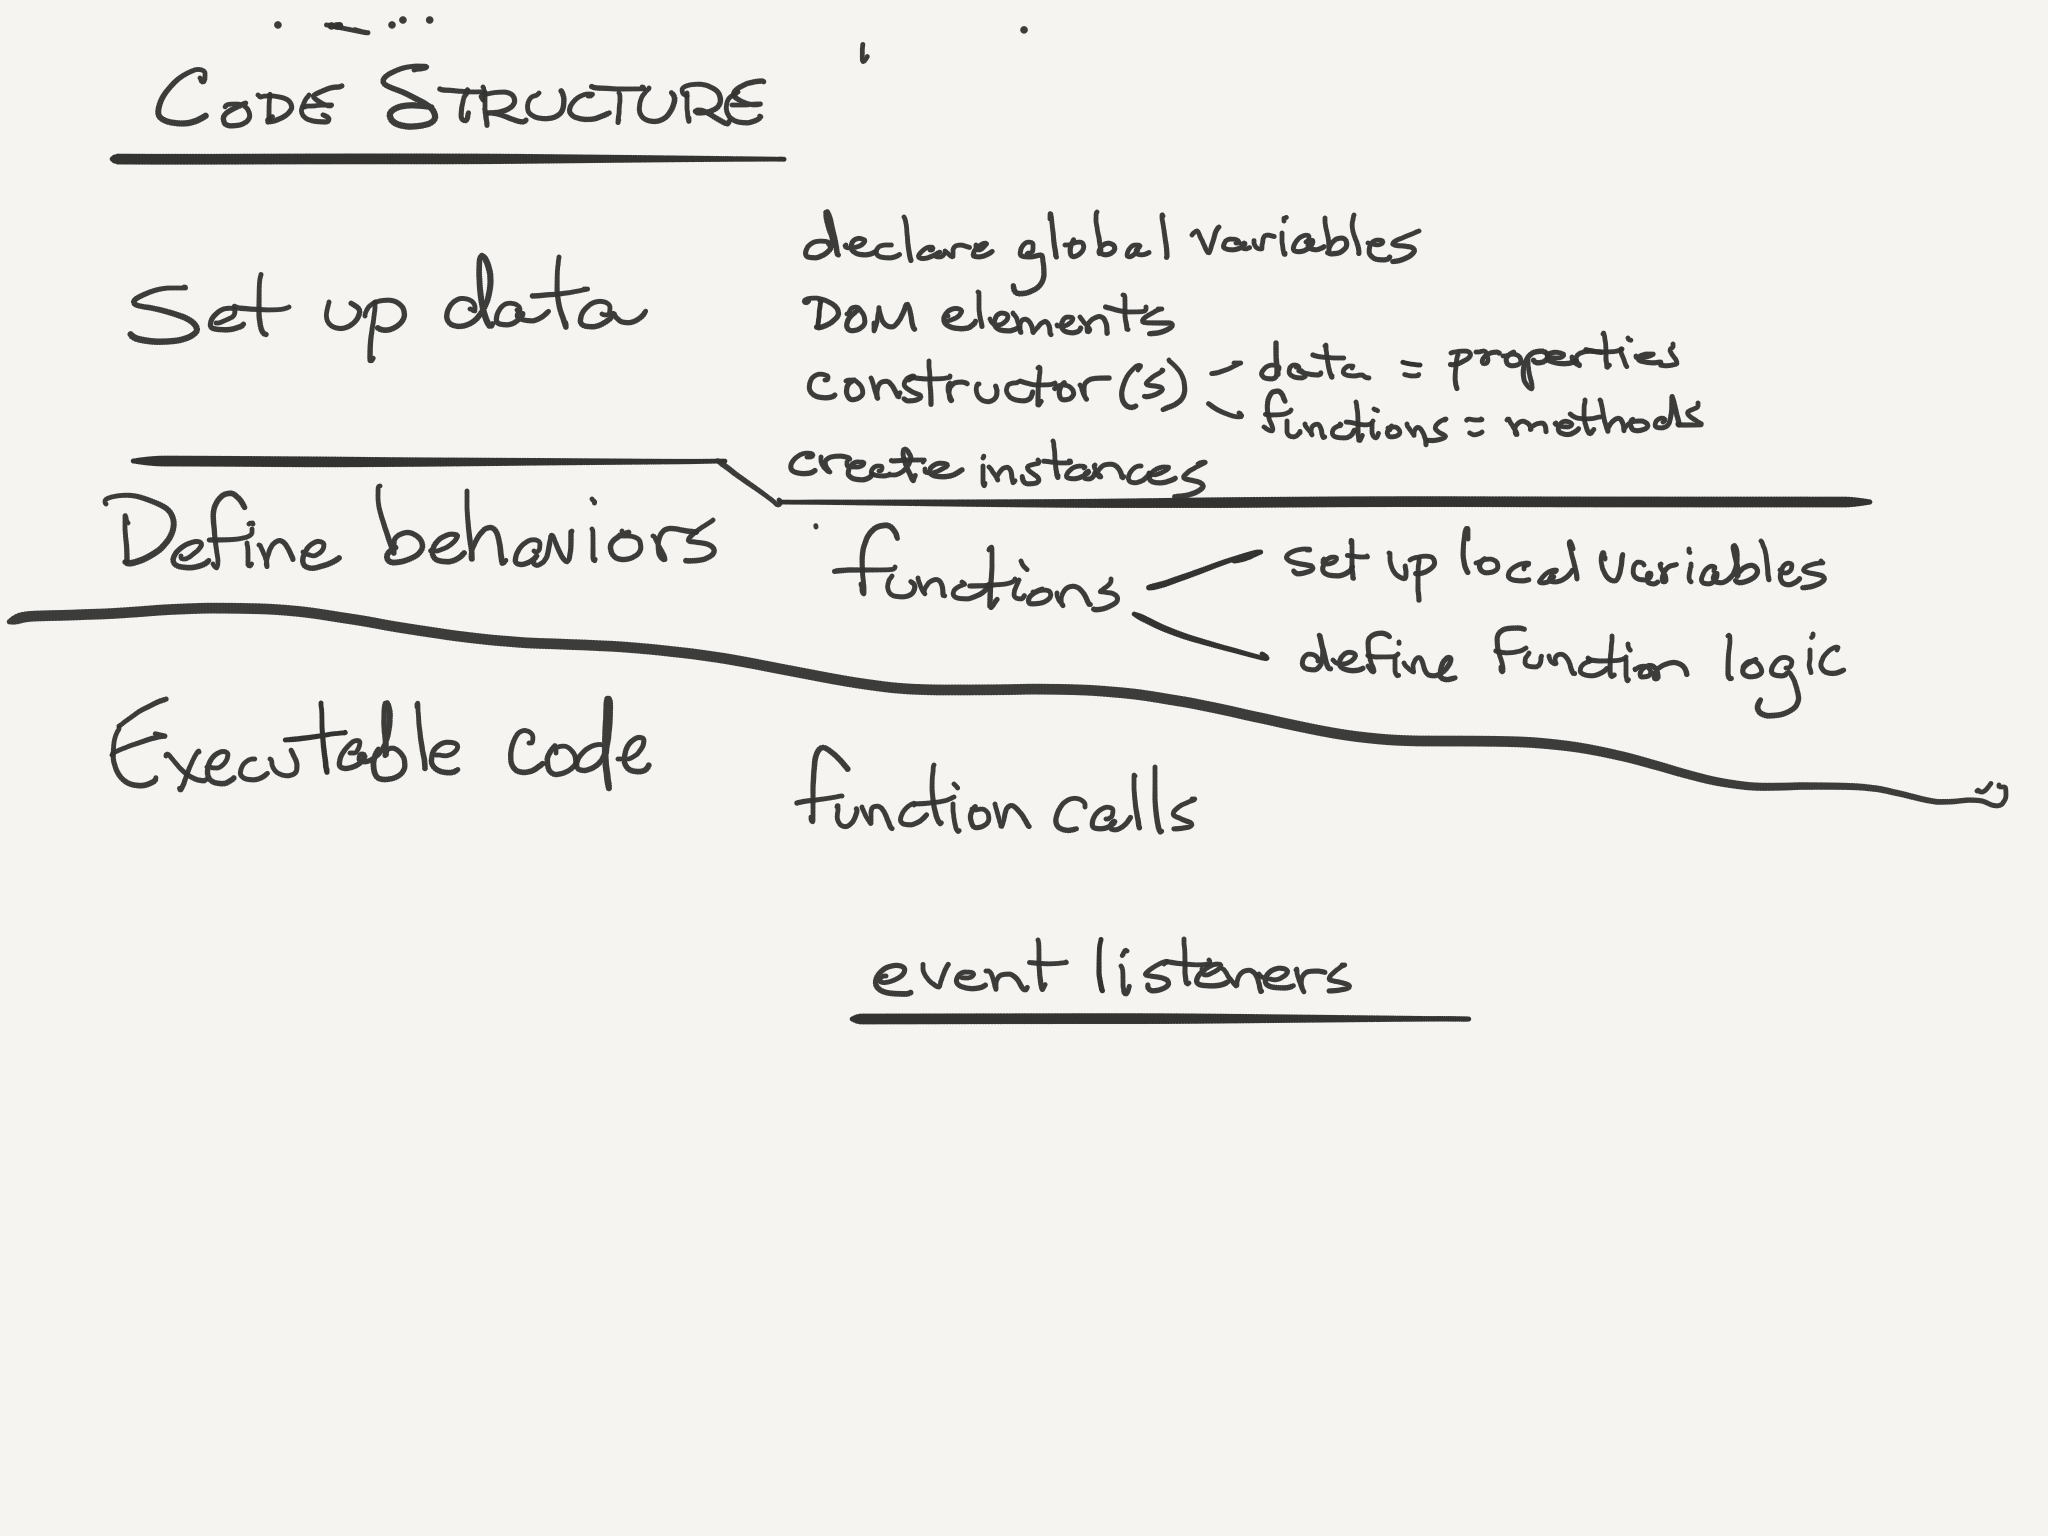 CODE STRUCTURE
Set up data
declare global variables
DOM elements
constructor(s) - data = properties
- functions = methods
create instances
Define behaviors
functions
set up local variables
define function logic
Executable code
function calls
event listeners